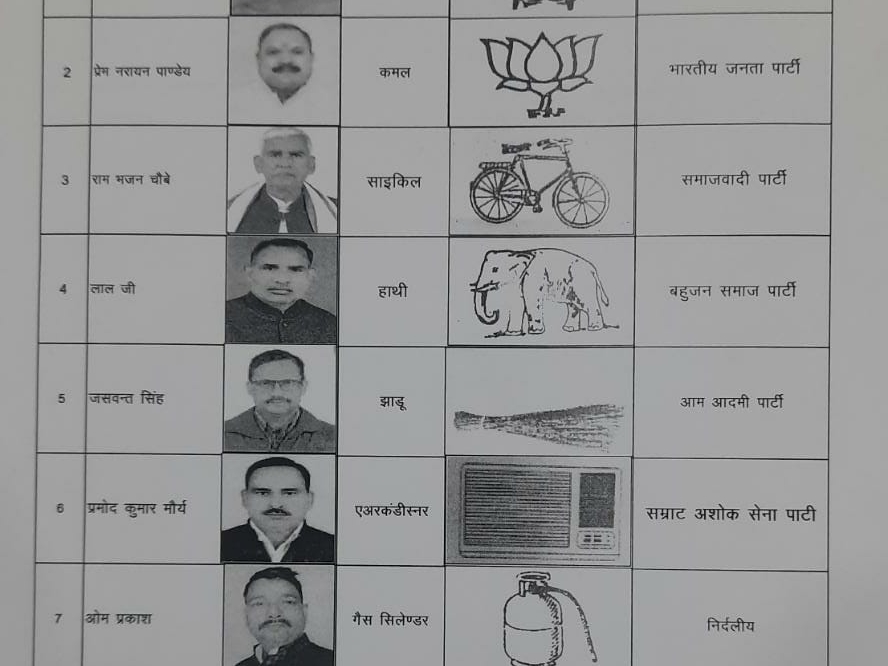 2 प्रेम नरायन पाण्डेय कमल भारतीय जनता पार्टी
3 राम भजन चौबे साइकिल समाजवादी पार्टी
4 लाल जी हाथी बहुजन समाज पार्टी
5 जसवन्त सिंह झाडू आम आदमी पार्टी
6 प्रमोद कुमार मौर्य एअरकंडीस्नर सम्राट अशोक सेना पाटी
7 ओम प्रकाश गैस सिलेण्डर निर्दलीय